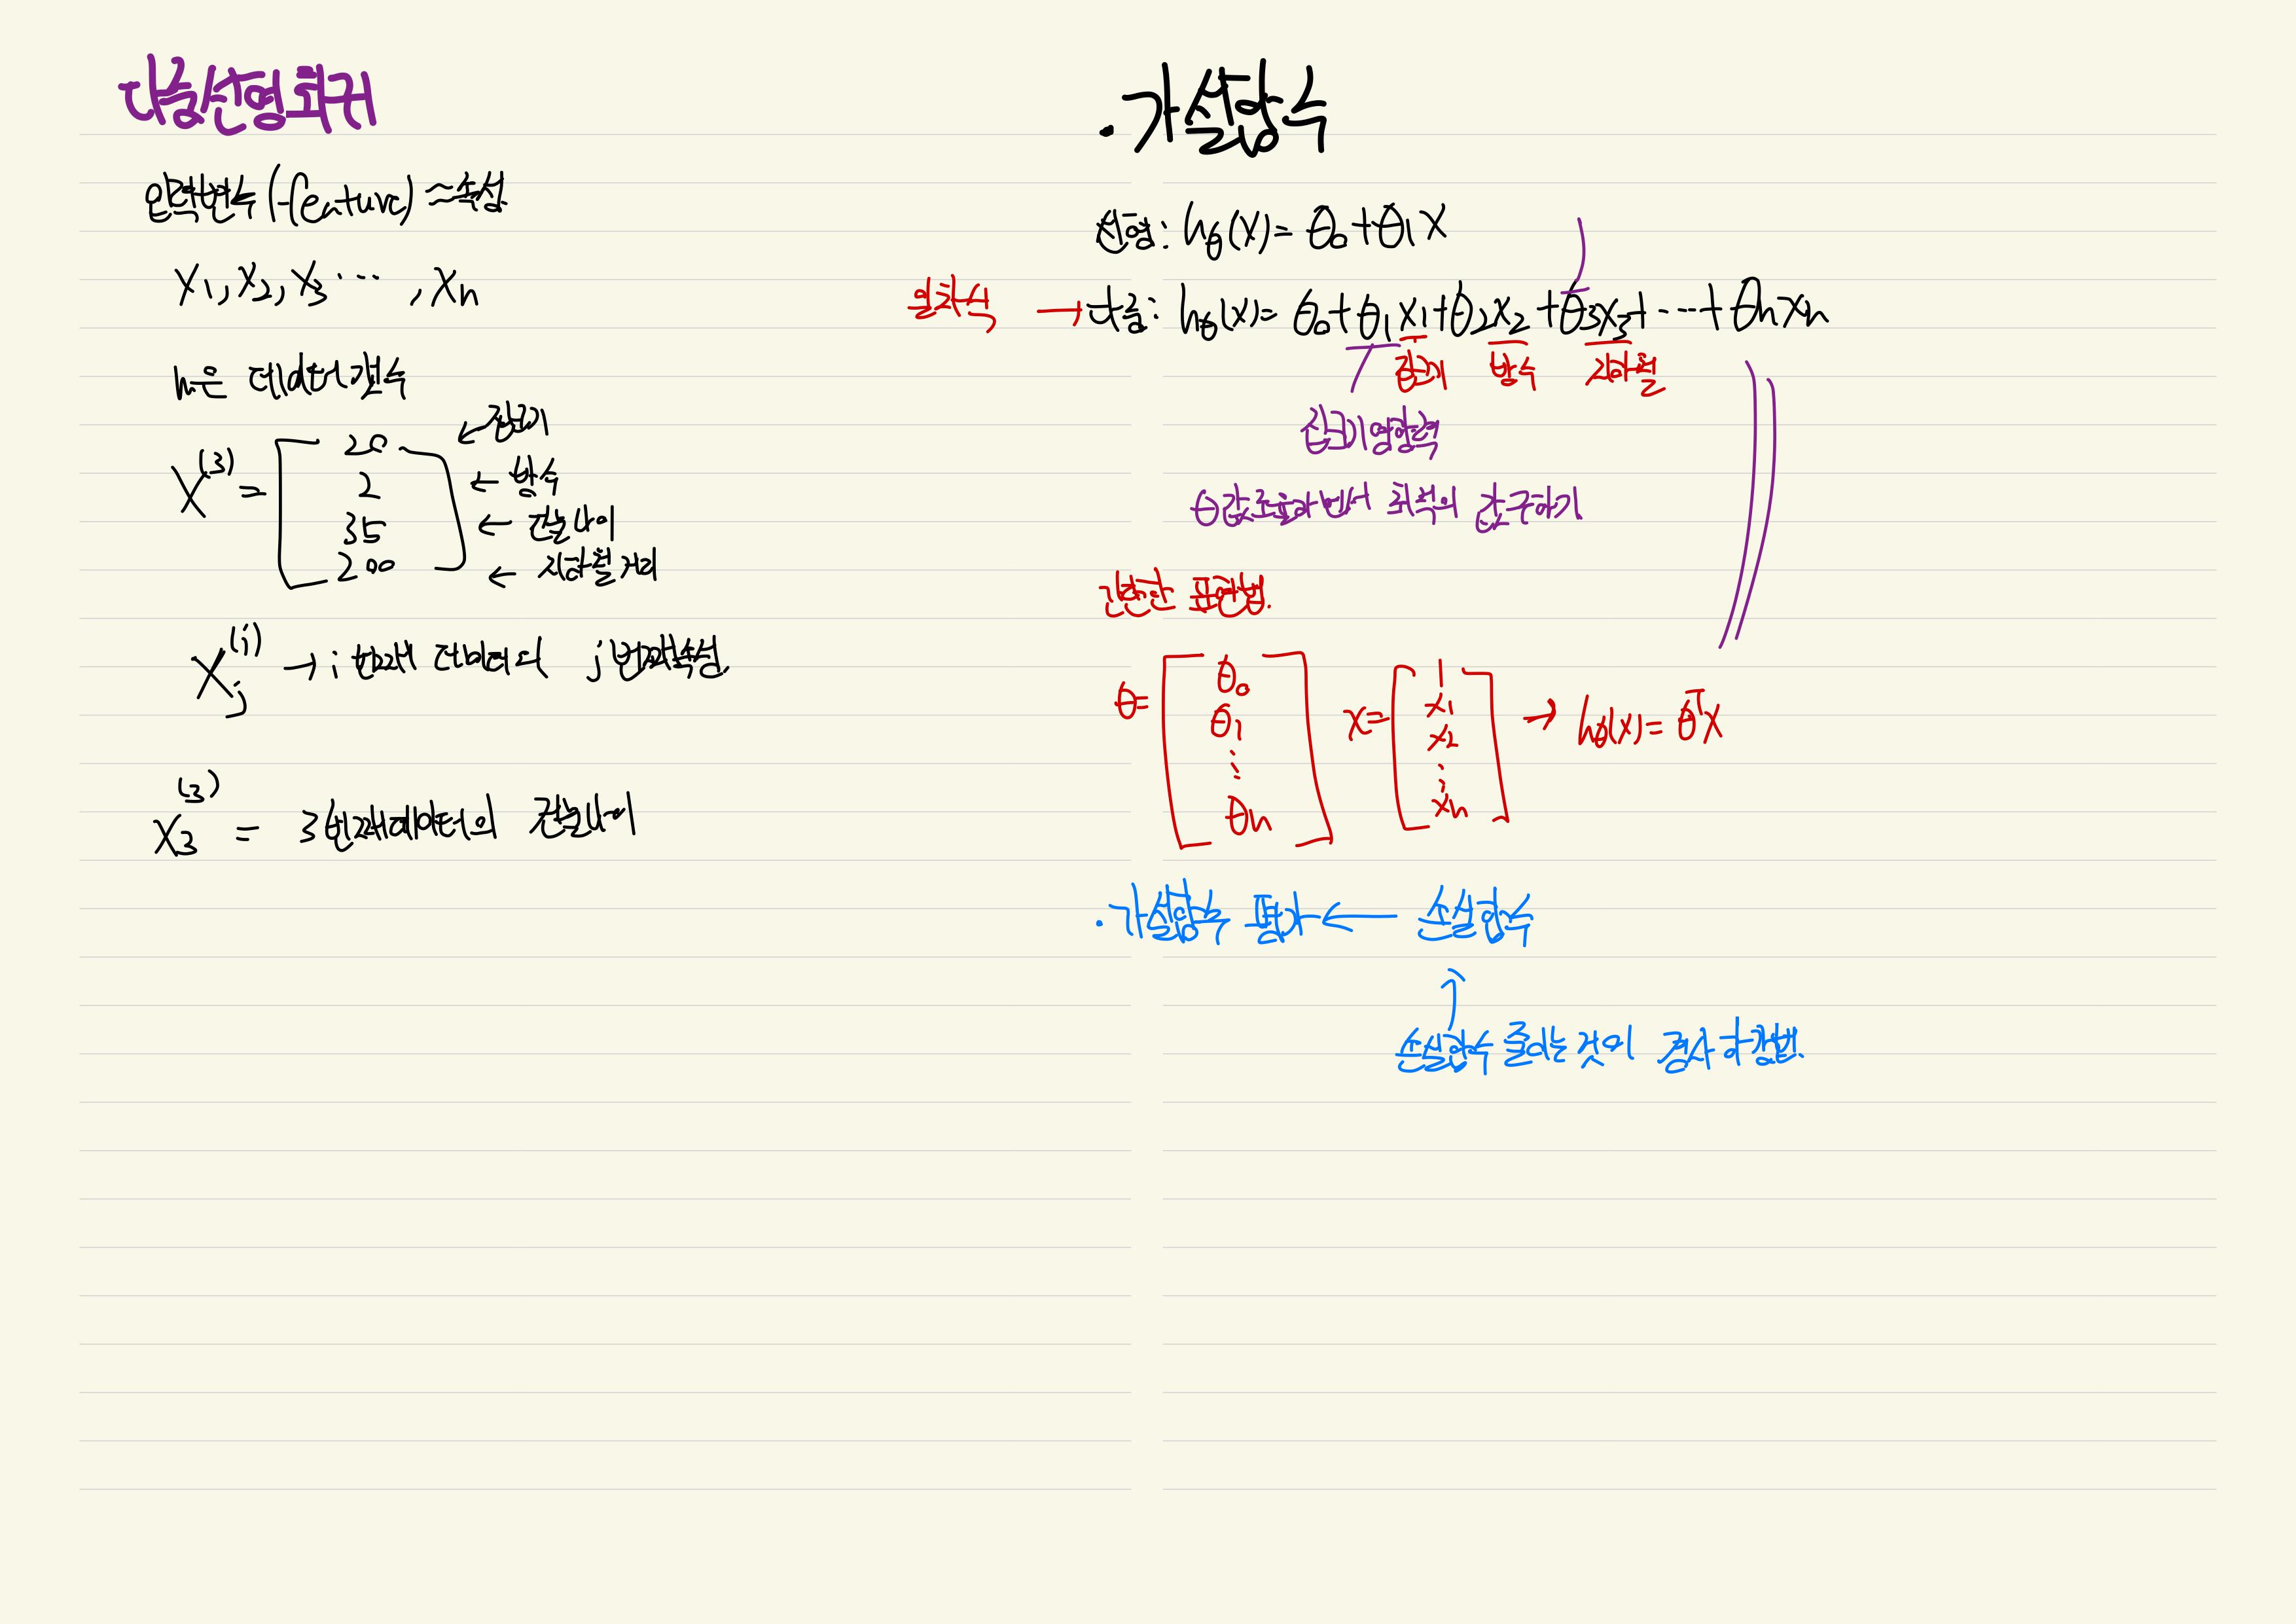 다중선형회귀
입력변수 (feature) ≈ 속성
x₁, x₂, x₃ ⋯ , xₙ
n은 데이터 갯수
x⁽³⁾ = [ 20 ← 집크기
2 ← 방수
35 ← 건물나이
200 ] ← 지하철 거리
xⱼ⁽ⁱ⁾ → i 번째 데이터의 j번째속성.
x₃⁽³⁾ = 3번째데이터의 건물나이
· 가설함수
선형: hθ(x) = θ₀ + θ₁x
일차식 → 다중: hθ(x) = θ₀ + θ₁x₁ + θ₂x₂ + θ₃x₃ + ⋯ + θₙxₙ
집크기 방수 지하철
집크기영향력
θ값조율하면서 최적의 값구하기
간단한 표현법.
θ = [ θ₀ θ₁ ⋮ θₙ ] x = [ 1 x₁ x₂ ⋮ xₙ ] → hθ(x) = θᵀx
· 가설함수 평가 ← 손실함수
↑
손실함수 줄이는 것이 경사 하강법.